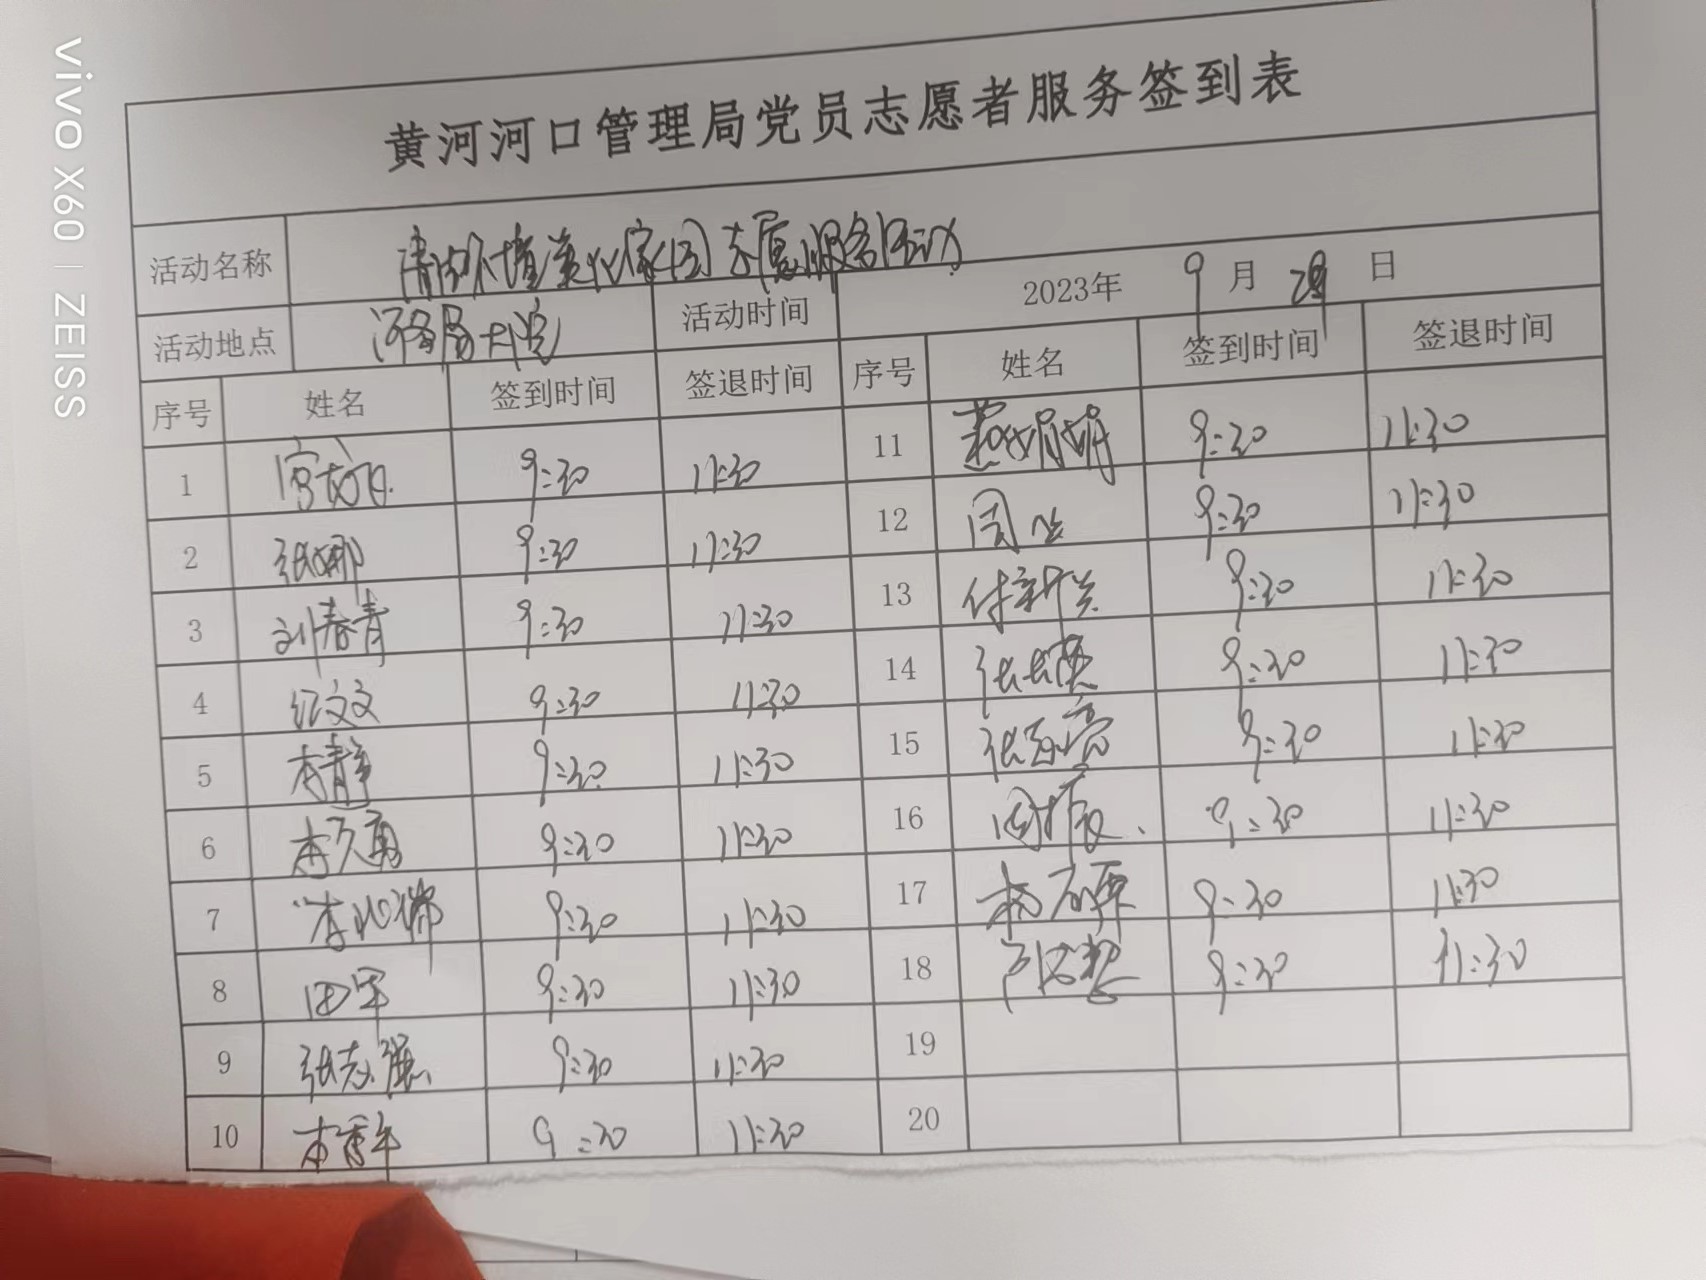 vivo X60 | ZEISS
黄河河口管理局党员志愿者服务签到表
活动名称 美化家园志愿服务活动
活动地点 河务局大院 活动时间 2023年 9月 日
序号 姓名 签到时间 签退时间 序号 姓名 签到时间 签退时间
1 9:30 11:30 11 9:30 11:30
2 张娜 9:30 11:30 12 周 9:30 11:30
3 刘春青 9:30 11:30 13 付新 9:30 11:30
4 纪文文 9:30 11:30 14 张 9:30 11:30
5 李静 9:30 11:30 15 张 亮 9:30 11:30
6 李 勇 9:30 11:30 16 周振 9:30 11:30
7 李 9:30 11:30 17 杨 9:30 11:30
8 田军 9:30 11:30 18 9:30 11:30
9 张志强 9:30 11:30 19
10 李 9:30 11:30 20